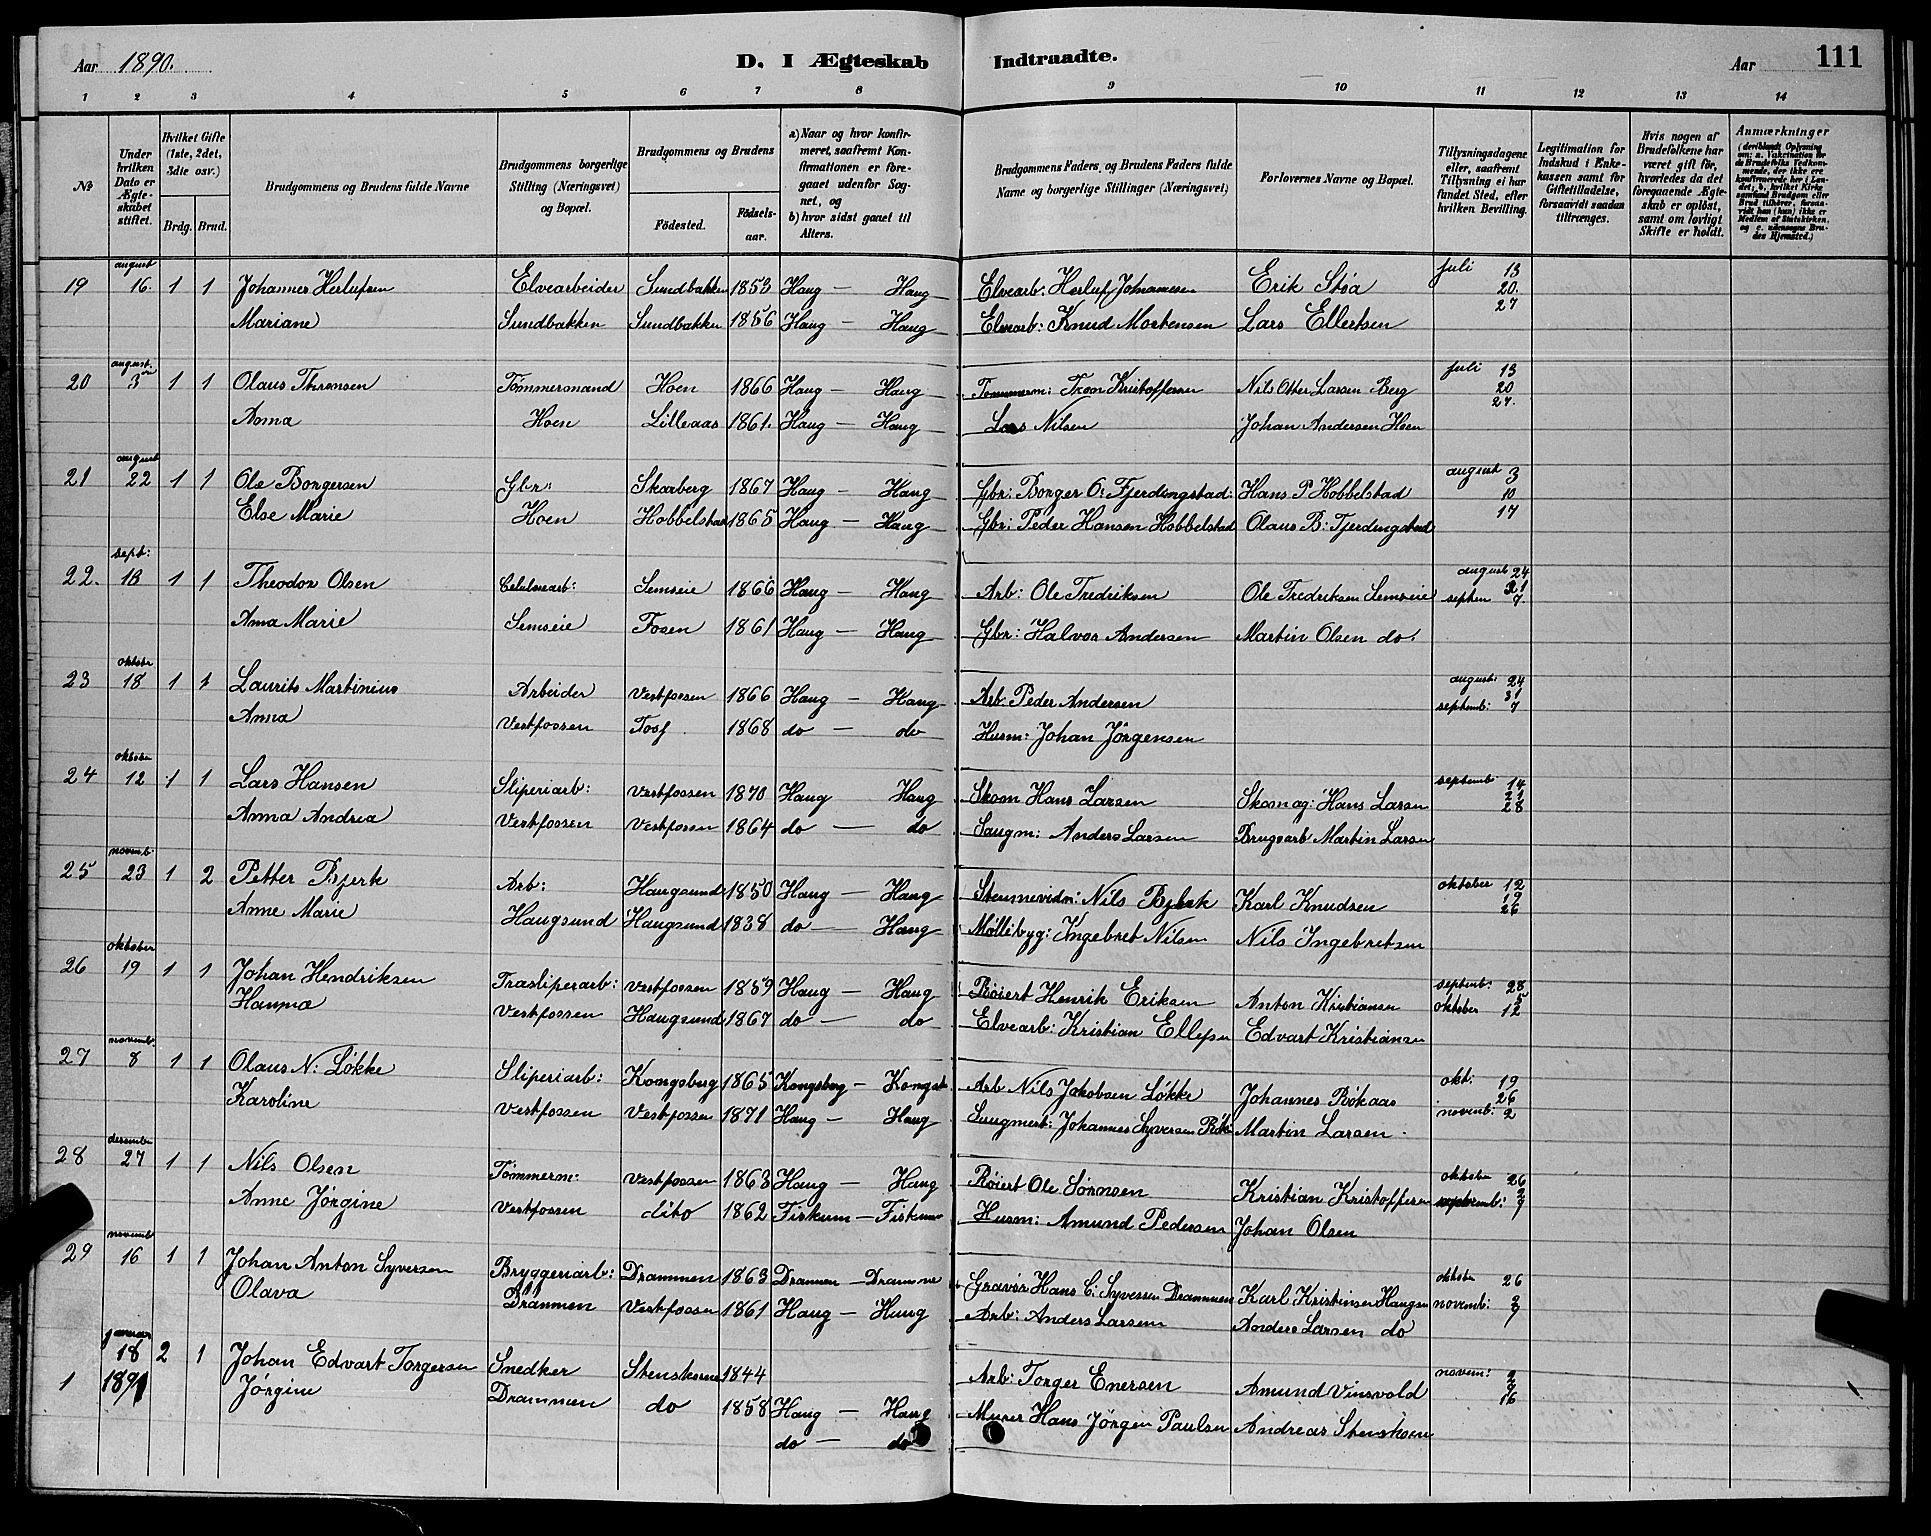 Aar 1890.
D. I Ægteskab Indtraadte.
Aar
111
1 2 3 4 5 6 7 8 9 10 11 12 13 14
№
Under hvilken Dato er Ægteskabet stiftet.
Hvilket Gifte (1ste, 2det, 3die osv.)
Brdg. Brud.
Brudgommens og Brudens fulde Navne
Brudgommens borgerlige Stilling (Næringsvei) og Bopæl.
Brudgommens og Brudens
Fødested. Fødselsaar.
a) Naar og hvor konfirmeret, saafremt Konfirmationen er foregaaet udenfor Sognet, og
b) hvor sidst gaaet til Alters.
Brudgommens Faders og Brudens Faders fulde Navne og borgerlige Stillinger (Næringsvei)
Forlovernes Navne og Bopæl.
Tillysningsdagene eller, saafremt Tillysning ei har fundet Sted, efter hvilken Bevilling.
Legitimation for Indskud i Enkekassen samt for Giftetilladelse, forsaavidt saadan tiltrænges.
Hvis nogen af Brudefolkene har været gift før, hvorledes da det foregaaende Ægteskab er opløst, samt om lovligt Skifte er holdt.
Anmærkninger
(deriblandt Oplysning om: a. Vakcination for de Brudefolks Vedkommende, der ikke ere konfirmerede her i Landet, b. hvilket Kirkesamfund Brudgom eller Brud tilhører, forsaavidt han (hun) ikke er Medlem af Statskirken, og c. udensogns Brudes Hjemsted.)
19 august 16. 1 1 Johannes Herlufsen Elvearbeider Sundbakken 1853 Haug — Haug Elvearb: Herluf Johannesen Erik Støa juli 13 20. 27
Mariane Sundbakken Sundbakken 1856 Haug — Haug Elvearb: Knud Mortensen Lars Ellertsen
20 august 3 1 1 Olaus Thronsen Tømmermand Hoen 1866 Haug — Haug Tømmerm: Tron Kristoffersen Nils Otter Larsen Berg juli 13 20 27.
Anna Hoen Lilleaas 1861. Haug — Haug Lars Nilsen Johan Andersen Hoen
21 august 22 1 1 Ole Borgersen Gbr: Skarberg 1867 Haug — Haug Gbr: Borger O: Fjerdingstad: Hans P Hobbelstad august 3 10 17
Else Marie Hoen Hobbelstad 1865 Haug — Haug Gbr: Peder Hansen Hobbelstad Olaus B: Fjerdingstad
22. sept: 18 1 1 Theodor Olsen Celulosearb: Semseie 1866 Haug — Haug Arb: Ole Fredriksen Ole Fredriksen Semseie august 24 31 septem 7.
Anna Marie Semseie Fosen 1861 Haug — Haug Gbr: Halvor Andersen Martin Olsen do.
23 oktober 18 1 1 Laurits Martinius Arbeider Vestfossen 1866 Haug — Haug Arb. Peder Andersen august: 24 31 septemb: 7
Anna Vestfossen Foss 1868 do — do Husm: Johan Jørgensen
24 oktober 12 1 1 Lars Hansen Sliperiarb: Vestfossen 1870 Haug Haug Skom Hans Larsen Skomag: Hans Larsen septemb 14 21 28
Anna Andrea Vestfossen Vestfossen 1864 do — do Saugm: Anders Larsen Brugsarb Martin Larsen
25 novemb. 23 1 2 Petter Bjerk Arb: Haugsund 1850 Haug — Haug Nils Bjerk Karl Knudsen oktober 12 19 26
Anne Marie Haugsund Haugsund 1838 do — Haug Møllebyg: Ingebret Nilsen Nils Ingebretsen
26 oktober 19 1 1 Johan Hendriksen Træsliperarb: Vestfossen 1859 Haug — Haug Røiert Henrik Eriksen Anton Kristiansen septemb. 28 oktober 5 12
Hanna Vestfossen Haugsund 1867 do — do Elvearb: Kristian Ellefsen Edvart Kristiansen
27 novemb. 8 1 1 Olaus N: Løkke Sliperiarb: Kongsberg 1865 Kongsberg — Kongsb Arb Nils Jakobsen Løkke Johannes Røkaas okt: 19 26 novemb: 2
Karoline Vestfossen Vestfossen 1871 Haug — Haug Saugmest: Johannes Syversen Røk Martin Larsen
28 desember 27 1 1 Nils Olsen Tømmerm: Vestfossen 1863 Haug — Haug Røiert Ole Sørnsen Kristian Kristoffersen oktober 26 2 septemb: 7
Anne Jørgine Vestfossen dito 1862 Fiskum — Fiskum Husm: Amund Pedersen Johan Olsen
29 novemb 16 1 1 Johan Anton Syversen Bryggeriarb: Drammen 1863 Drammen — Drammen Gravør Hans C: Syversen Drammen Karl Kristinsen Haugsu oktober 26 novemb: 2 7
Olava Drammen Vestfossen 1861 Haug — Haug Arb: Anders Larsen Anders Larsen do
1 januar 18 1891 2 1 Johan Edvart Torgersen Snedker Stenskerne 1844 Arb: Torger Enersen Amund Vinsvold novem: 2 9 16
Jørgine Drammen do 1858 Haug — Haug Murer Hans Jørgen Paulsen Andreas Stenskoen
do — do